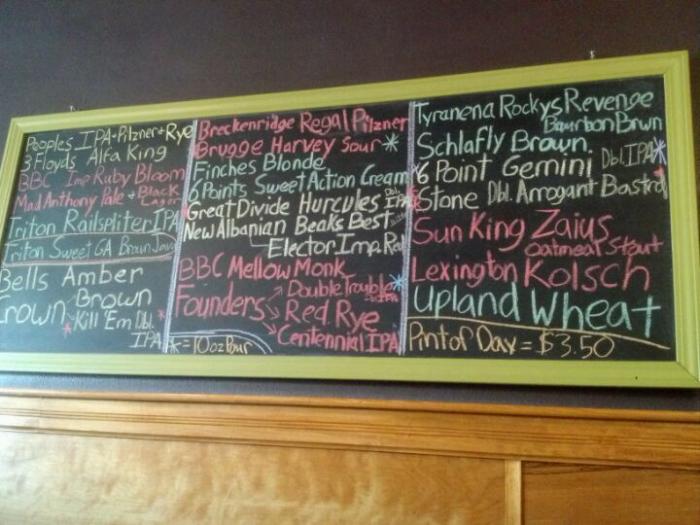 Peoples IPA + Pilzner + Rye
3 Floyds Alfa King
BBC Imp Ruby Bloom
Mad Anthony Pale + Black Lager
Triton Railspliter IPA
Triton Sweet GA Brown
Bells Amber
Crown Brown
*Kill 'Em Dbl. IPA
Breckenridge Regal Pilzner
Brugge Harvey Sour *
Finches Blonde
6 Points Sweet Action Cream
Great Divide Hurcules Dbl. IPA
New Albanian Beaks Best
Elector Imp. Red
BBC Mellow Monk
Founders → Double Trouble *
→ Red Rye
→ Centennial IPA
* = 10oz Pour
Tyranena Rockys Revenge
Bourbon Brwn
Schlafly Brown
6 Point Gemini Dbl. IPA *
*Stone Dbl. Arrogant Bastrd
Sun King Zaius
Oatmeal Stout
Lexington Kolsch
Upland Wheat
Pint of Day = $3.50